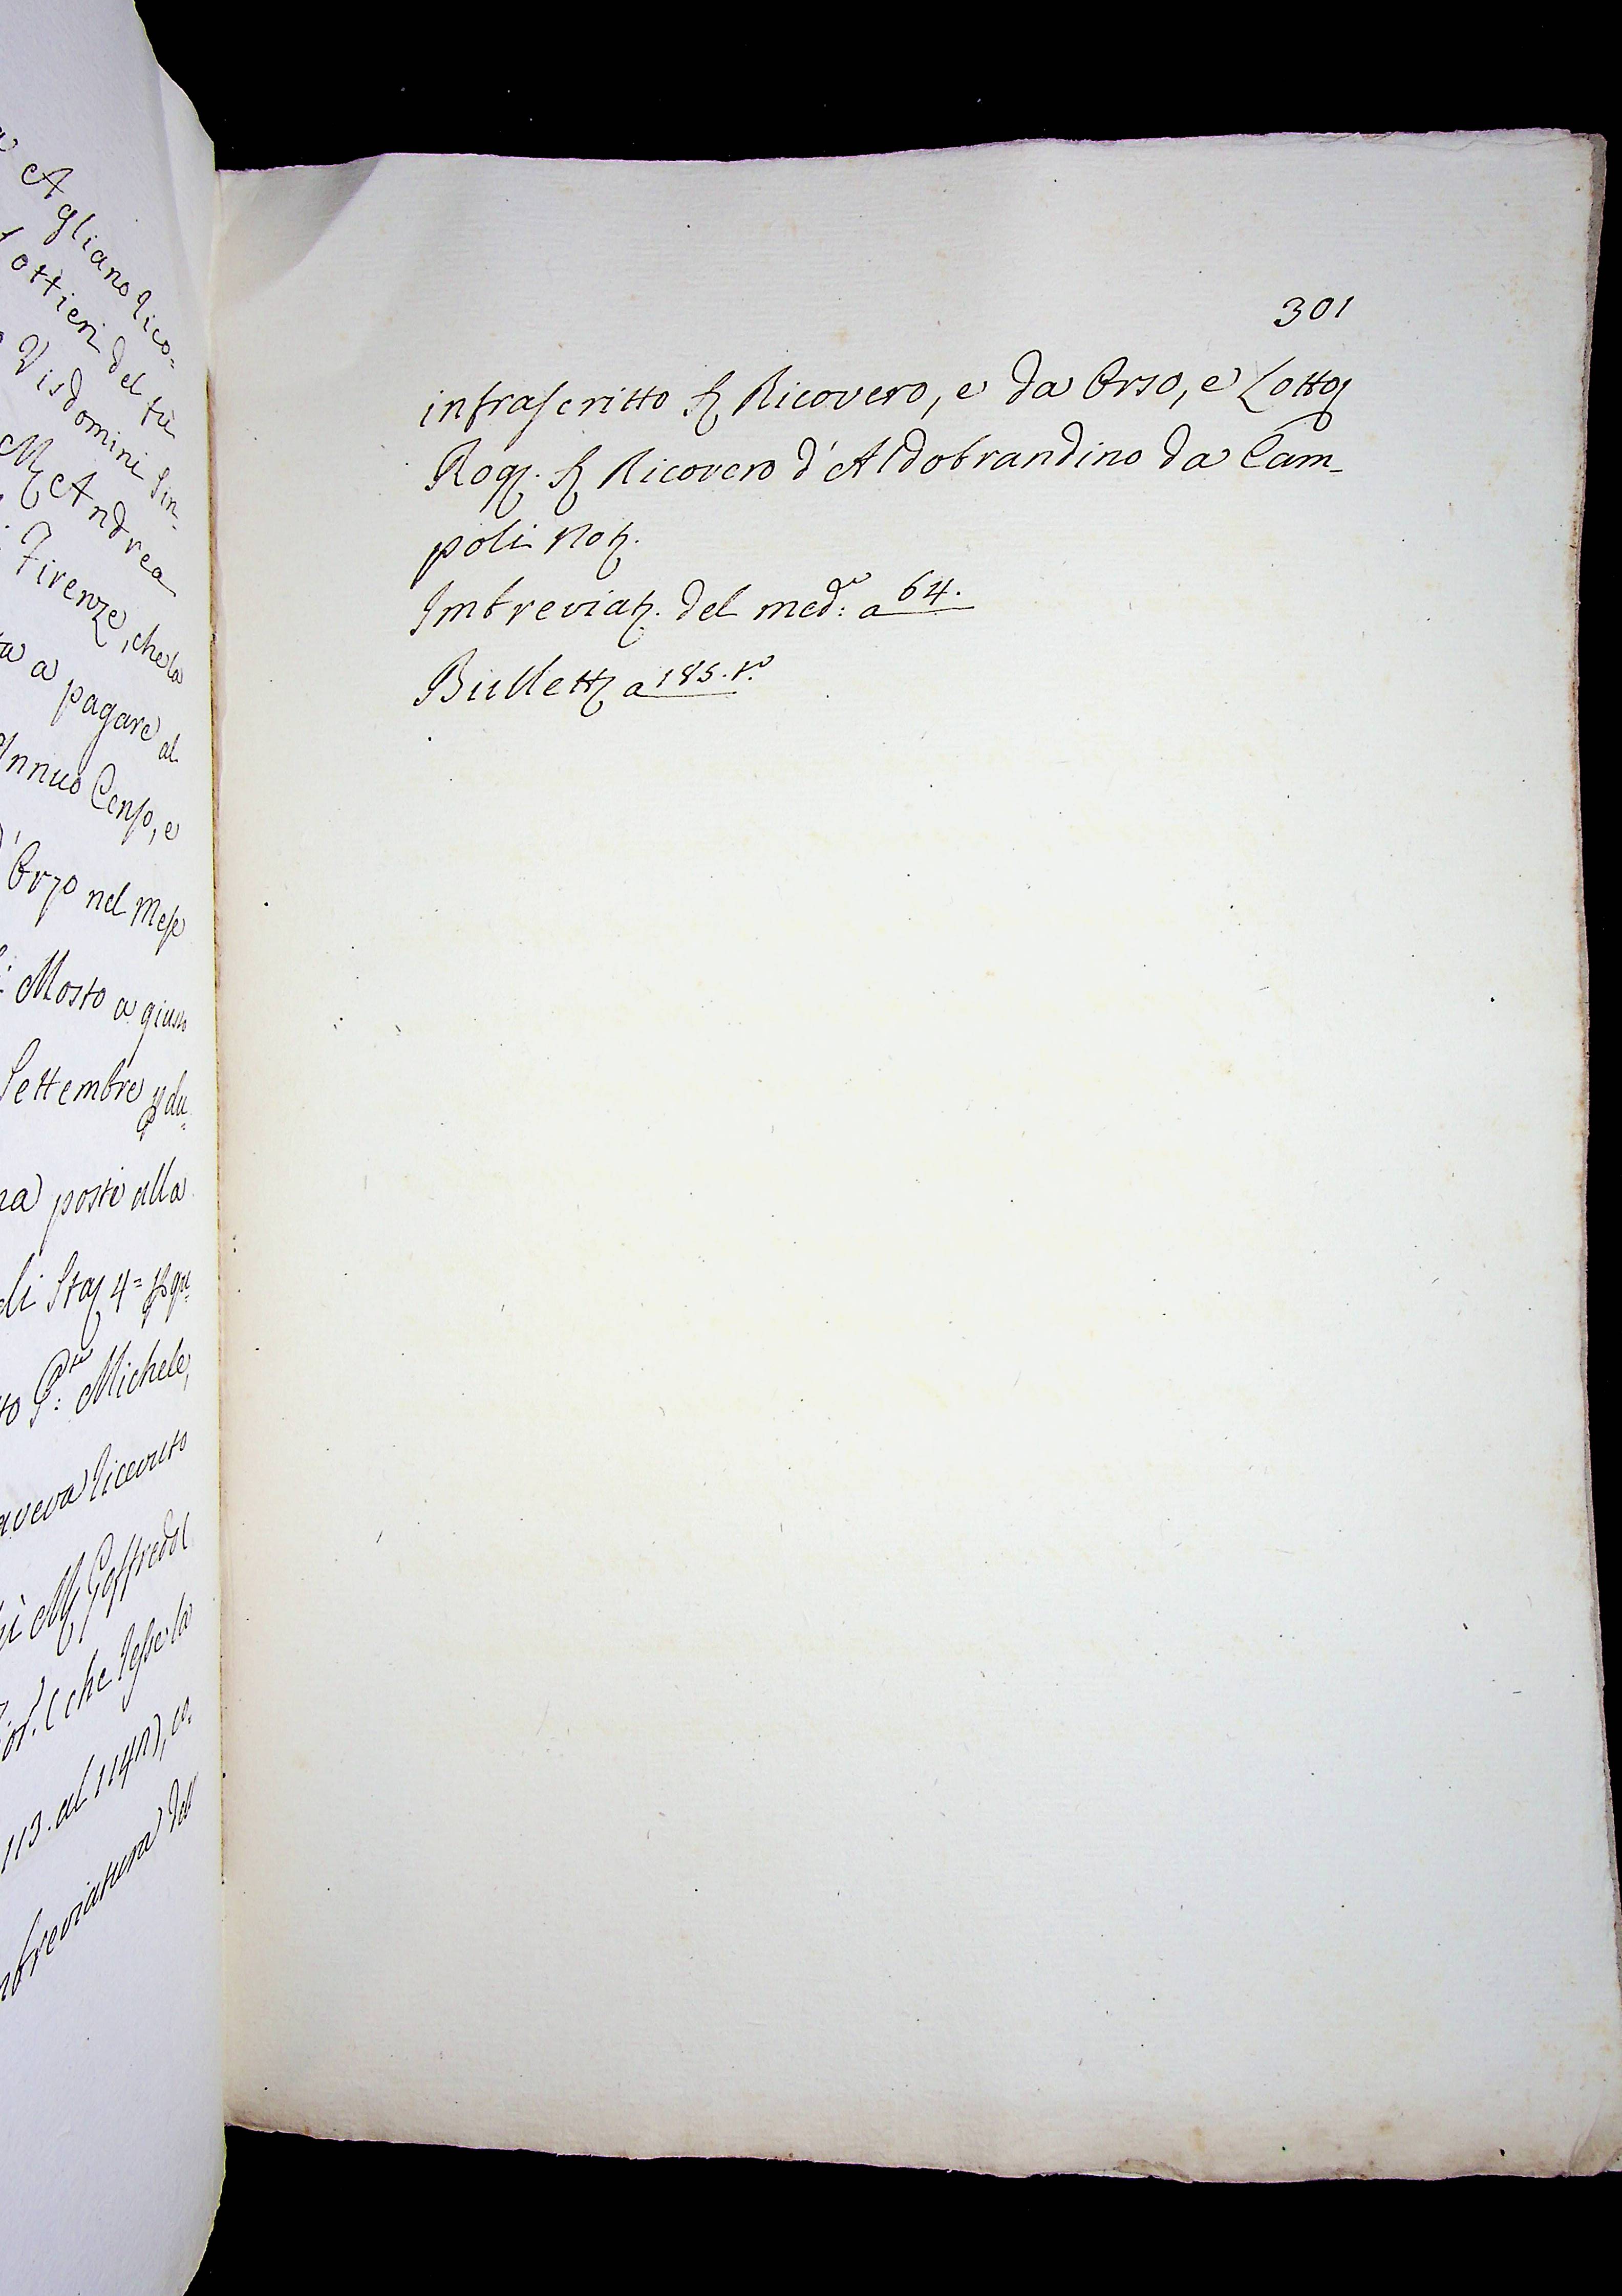 a Agliano rico=
Lottieri del fù
Visdomini Sin=
Mẜ Andrea
Firenze, che la
a pagare al
Annuo Censo, e
d'Orzo nel Mese
Mosto a giusto
Settembre p du=
posti alla
di Staj 4= p qu=
P:te Michele,
aveva ricevuto
Mẜ Goffredo
(che resse la
113. al 114n), co.
mbreviatura del
301
infrascritto Sẜ Ricovero, e da Orso, e Lottoj
Rogẜ. Sẜ Ricovero d'Aldobrandino da Cam-
poli Notẜ.
Imbreviatẜ. del med:o a 64.
Bullettẜ a 185. to.